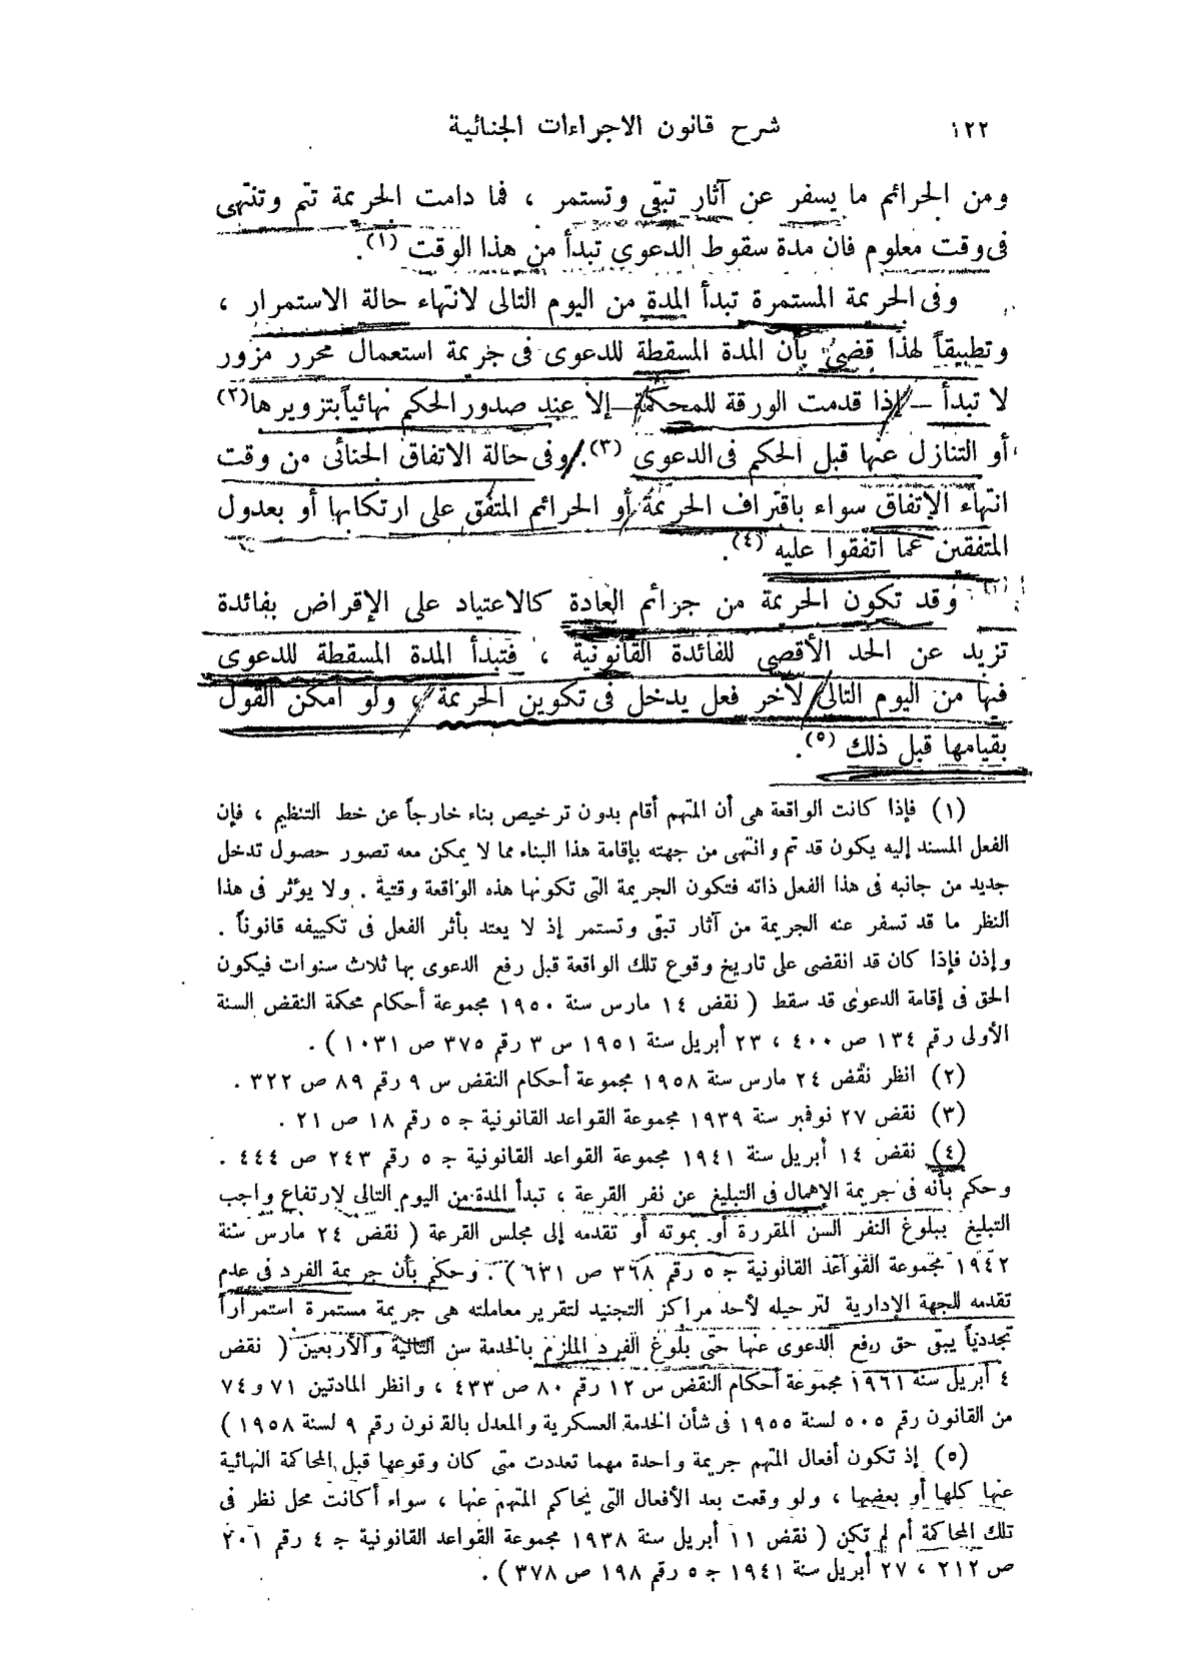 ١٢٢
شرح قانون الاجراءات الجنائية
ومن الجرائم ما يسفر عن آثار تبقى وتستمر ، فما دامت الجريمة تتم وتنتهى
فى وقت معلوم فان مدة سقوط الدعوى تبدأ من هذا الوقت (١).
وفى الجريمة المستمرة تبدأ المدة من اليوم التالى لانتهاء حالة الاستمرار ،
وتطبيقاً لهذا قضى بأن المدة المسقطة للدعوى فى جريمة استعمال محرر مزور
لا تبدأ – إذا قدمت الورقة للمحكمة – إلا عند صدور الحكم نهائياً بتزويرها (٢)
أو التنازل عنها قبل الحكم فى الدعوى (٣). وفى حالة الاتفاق الجنائى من وقت
انتهاء الإتفاق سواء باقتراف الجريمة أو الجرائم المتفق على ارتكابها أو بعدول
المتفقين عما اتفقوا عليه (٤).
وقد تكون الجريمة من جرائم العادة كالاعتياد على الإقراض بفائدة
تزيد عن الحد الأقصى للفائدة القانونية ، فتبدأ المدة المسقطة للدعوى
فيها من اليوم التالى لآخر فعل يدخل فى تكوين الجريمة ، ولو أمكن القول
بقيامها قبل ذلك (٥).
(١) فإذا كانت الواقعة هى أن المتهم أقام بدون ترخيص بناء خارجاً عن خط التنظيم ، فإن
الفعل المسند إليه يكون قد تم وانتهى من جهته بإقامة هذا البناء مما لا يمكن معه تصور حصول تدخل
جديد من جانبه فى هذا الفعل ذاته فتكون الجريمة التى تكونها هذه الواقعة وقتية . ولا يؤثر فى هذا
النظر ما قد تسفر عنه الجريمة من آثار تبقى وتستمر إذ لا يعتد بأثر الفعل فى تكييفه قانوناً .
وإذن فإذا كان قد انقضى على تاريخ وقوع تلك الواقعة قبل رفع الدعوى بها ثلاث سنوات فيكون
الحق فى إقامة الدعوى قد سقط ( نقض ١٤ مارس سنة ١٩٥٠ مجموعة أحكام محكمة النقض السنة
الأولى رقم ١٣٤ ص ٤٠٠ ، ٢٣ أبريل سنة ١٩٥١ س ٣ رقم ٣٧٥ ص ١٠٣١ ) .
(٢) انظر نقض ٢٤ مارس سنة ١٩٥٨ مجموعة أحكام النقض س ٩ رقم ٨٩ ص ٣٢٢ .
(٣) نقض ٢٧ نوفمبر سنة ١٩٣٩ مجموعة القواعد القانونية ج ٥ رقم ١٨ ص ٢١ .
(٤) نقض ١٤ أبريل سنة ١٩٤١ مجموعة القواعد القانونية ج ٥ رقم ٢٤٣ ص ٤٤٤ .
وحكم بأنه فى جريمة الإهمال فى التبليغ عن نفر القرعة ، تبدأ المدة من اليوم التالى لارتفاع واجب
التبليغ ببلوغ النفر السن المقررة أو بموته أو تقدمه إلى مجلس القرعة ( نقض ٢٤ مارس سنة
١٩٤٢ مجموعة القواعد القانونية ج ٥ رقم ٣٦٨ ص ٦٣١ ) . وحكم بأن جريمة الفرد فى عدم
تقدمه للجهة الإدارية لترحيله لأحد مراكز التجنيد لتقرير معاملته هى جريمة مستمرة استمراراً
تجددياً يبقى حق رفع الدعوى عنها حتى بلوغ الفرد الملزم بالخدمة سن الثانية والأربعين ( نقض
٤ أبريل سنة ١٩٦١ مجموعة أحكام النقض س ١٢ رقم ٨٠ ص ٤٣٣ ، وانظر المادتين ٧١ و ٧٤
من القانون رقم ٥٠٥ لسنة ١٩٥٥ فى شأن الخدمة العسكرية والمعدل بالقانون رقم ٩ لسنة ١٩٥٨ )
(٥) إذ تكون أفعال المتهم جريمة واحدة مهما تعددت متى كان وقوعها قبل المحاكمة النهائية
عنها كلها أو بعضها ، ولو وقعت بعد الأفعال التى يحاكم المتهم عنها ، سواء أكانت محل نظر فى
تلك المحاكمة أم لم تكن ( نقض ١١ أبريل سنة ١٩٣٨ مجموعة القواعد القانونية ج ٤ رقم ٢٠١
ص ٢١٢ ، ٢٧ أبريل سنة ١٩٤١ ج ٥ رقم ١٩٨ ص ٣٧٨ ) .